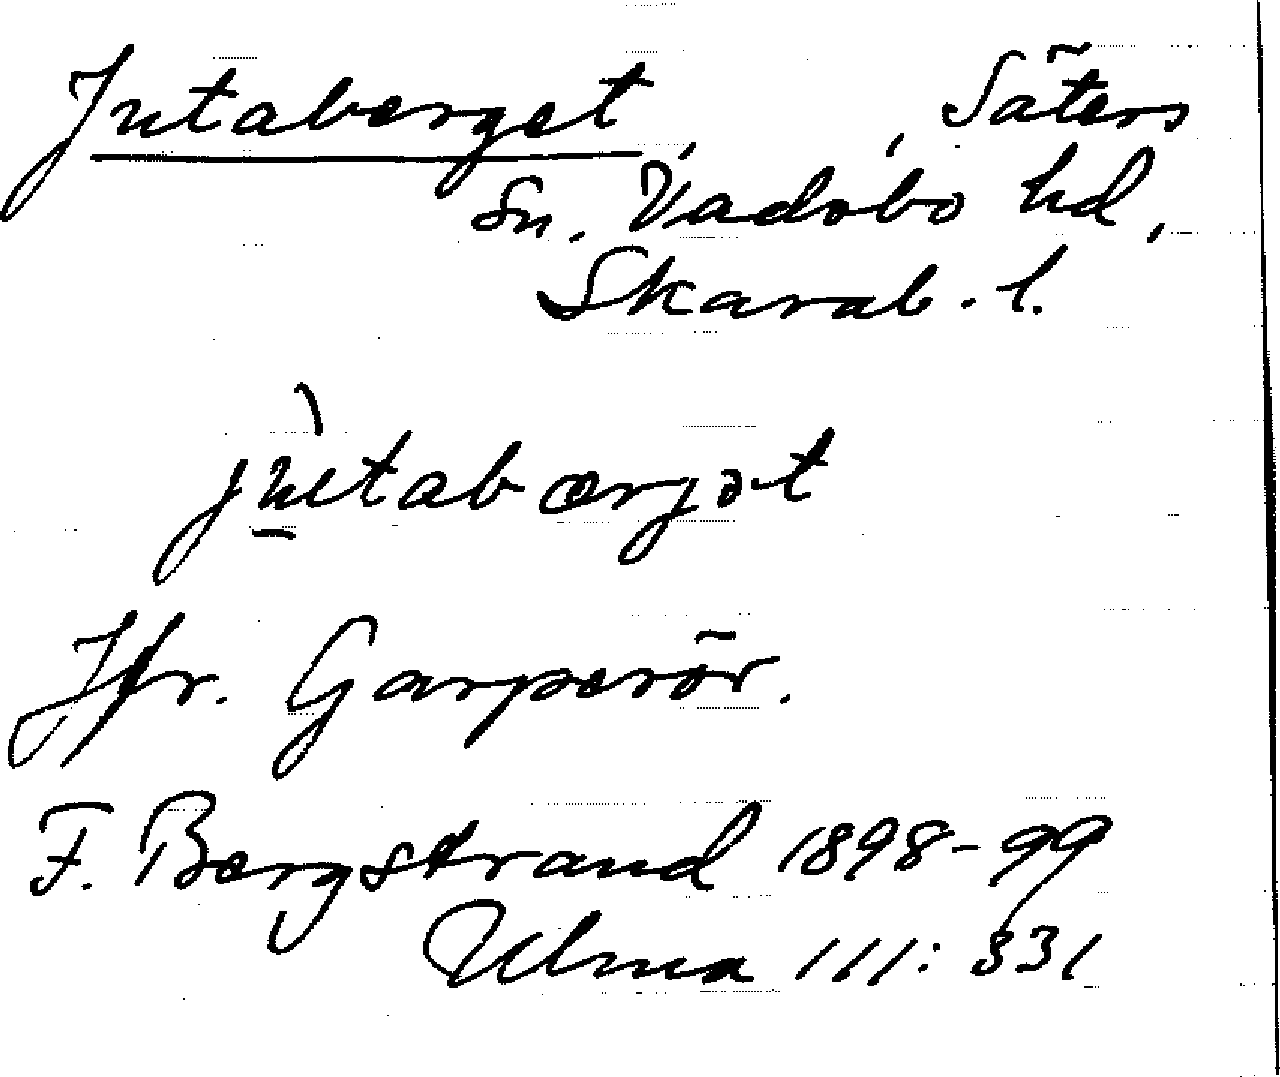 Jutaberget, Säters
sn. Vadsbo hd,
Skarab. l.
jùtabærjət
Jfr. Garperör.
F. Bergstrand 1898-99
Ulma 111: 331